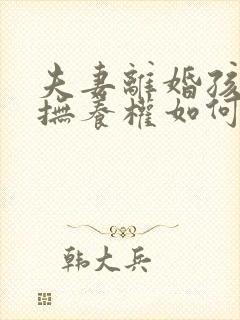 夫妻離婚孩
撫養權如何
韩大兵